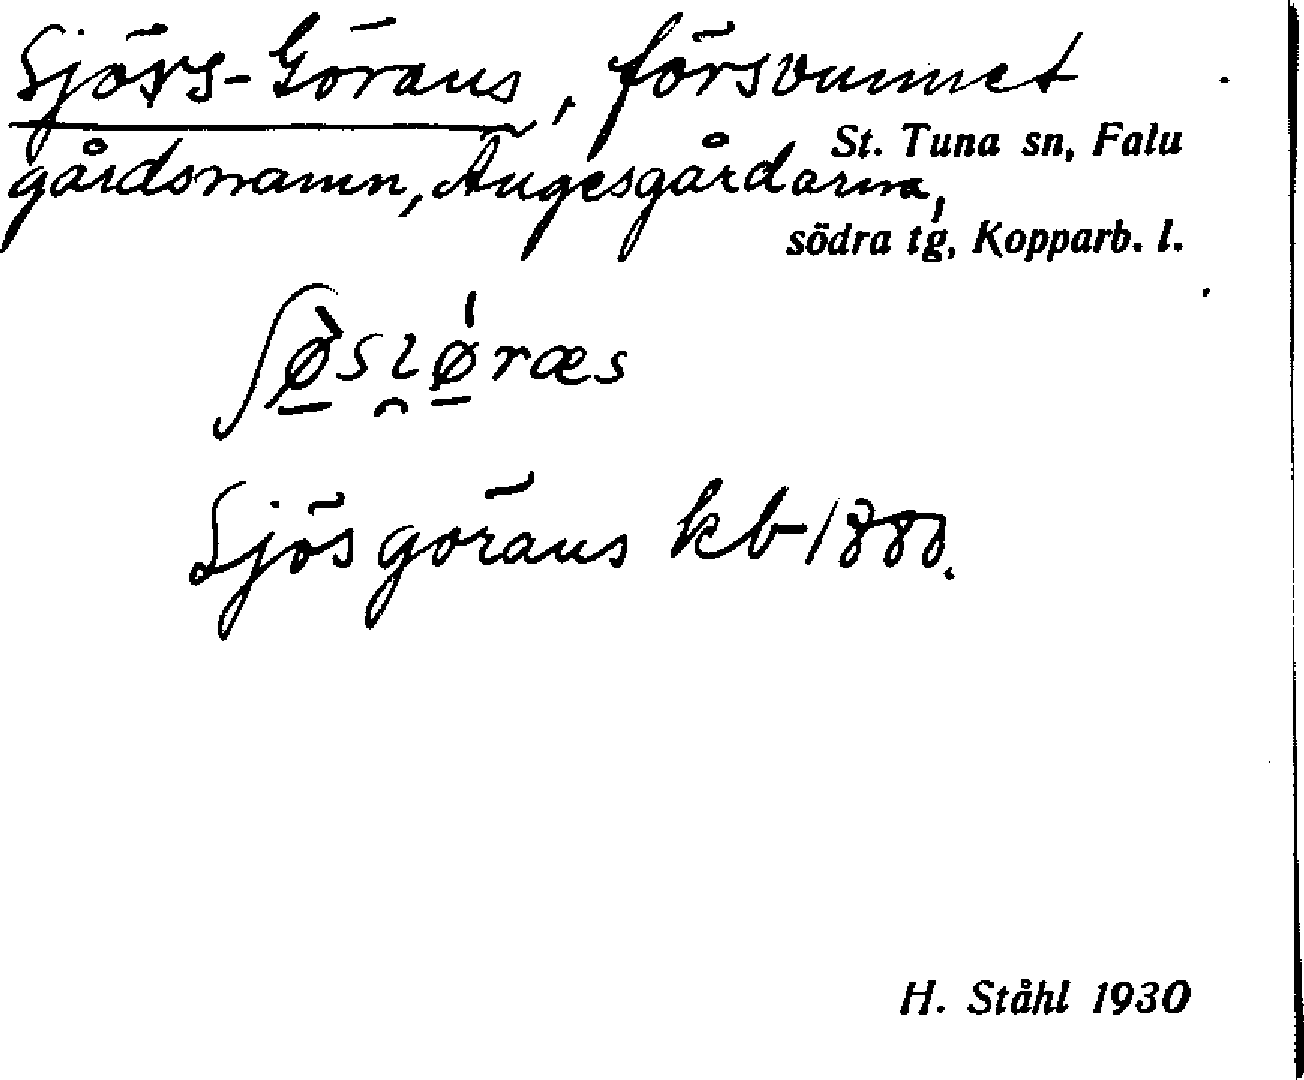 Sjörs-Görans, försvunnet
St. Tuna sn, Falu
gårdsnamn, Augesgårdarna,
södra tg, Kopparb. l.
Sjösgörans kb 1880.
H. Ståhl 1930